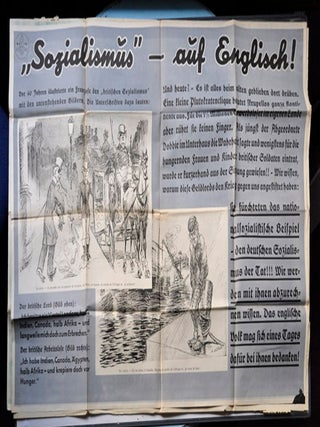 „Sozialismus" – auf Englisch!
Vor 40 Jahren illustrierte ein Franzose den „britischen Sozialismus"
mit den untenstehenden Bildern. Die Unterschriften dazu lauten:
Und heute? – Es ist alles beim alten geblieben dort drüben.
Eine kleine Plutokratenclique
aber rührt sie keinen Finger. Als jüngst der Abgeordnete
Dobbie im Unterhaus die Wahrheit sagte und wenigstens für die
hungernden Frauen und Kinder britischer Soldaten eintrat,
wurde er kurzerhand aus der
gewiesen!! – Wir wissen,
warum diese Geldlords den Krieg gegen uns angestiftet haben:
Sie fürchteten das natio-
nalsozialistische Beispiel
– den deutschen Sozialis-
mus der Tat!!! Wir wer-
den mit ihnen abzurech-
nen wissen. Das englische
Volk mag sich eines Tages
dafür bei ihnen bedanken!
Der britische Lord (Bild oben):
Indien, Canada, halb Afrika – und
langweile mich doch zum Erbrechen."
Der britische Arbeitslose (Bild rechts):
„Ich habe Indien, Canada, Ägypten,
halb Afrika – und krepiere doch vor
Hunger."